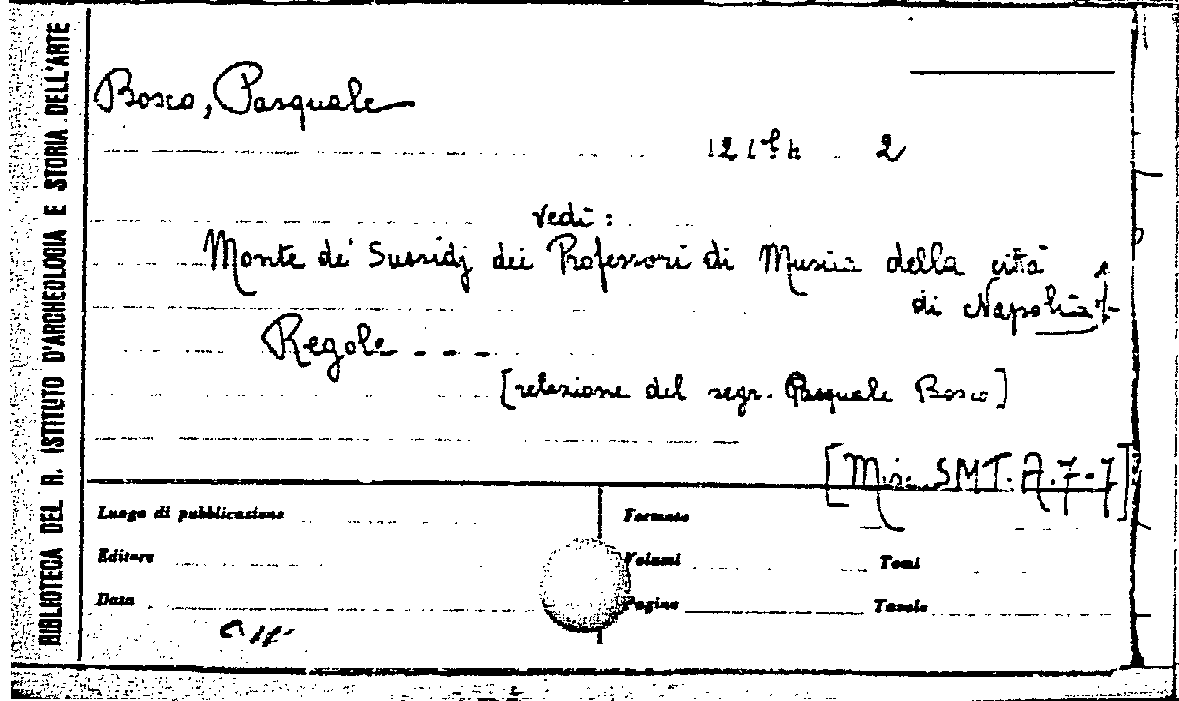 BIBLIOTECA DEL R. ISTITUTO D'ARCHEOLOGIA E STORIA DELL'ARTE
Bosco, Pasquale
2
vedi:
Monte de' Sussidj dei Professori di Musica della città
di Napoli
Regole - - -
[relazione del segr. Pasquale Bosco]
[Misc. SMT. A. 7-7]
Luogo di pubblicazione
Formato
Editore
Volumi
Tomi
Data
Pagine
Tavole